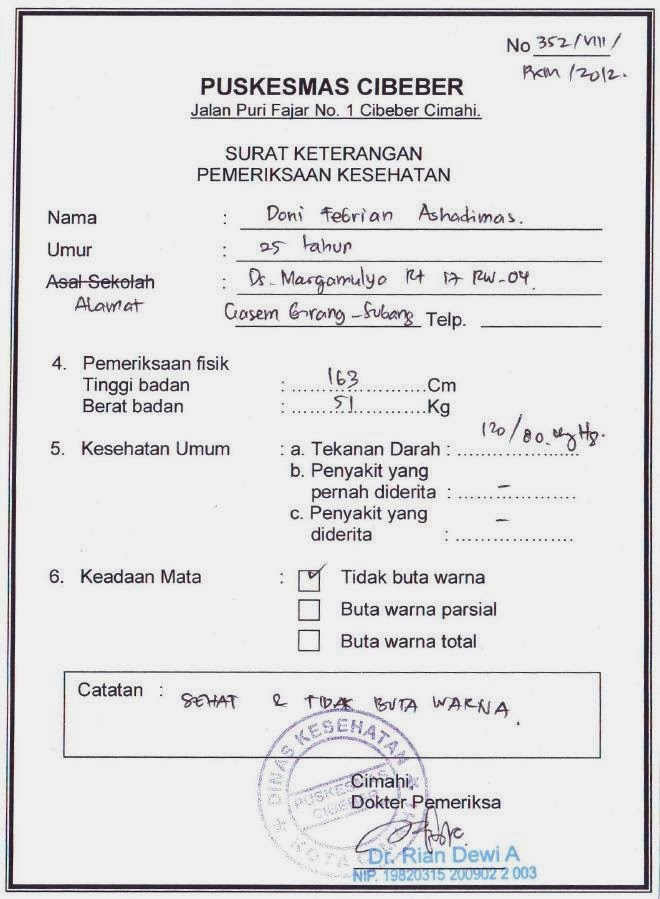 No 352/VIII/
PKM/2012.
PUSKESMAS CIBEBER
Jalan Puri Fajar No. 1 Cibeber Cimahi.
SURAT KETERANGAN
PEMERIKSAAN KESEHATAN
Nama : Doni Febrian Ashadimas.
Umur : 25 tahun
Asal Sekolah : Ds. Margamulyo Rt 17 RW-04
Alamat Girang - Subang Telp.
4. Pemeriksaan fisik
Tinggi badan : 163 Cm
Berat badan : 51 Kg
5. Kesehatan Umum : a. Tekanan Darah : 120/80 mmHg.
b. Penyakit yang
pernah diderita : -
c. Penyakit yang
diderita : -
6. Keadaan Mata : ✓ Tidak buta warna
Buta warna parsial
Buta warna total
Catatan : SEHAT & TIDAK BUTA WARNA.
DINAS KESEHATAN
PUSKESMAS
CIBEBER
KOTA
Cimahi,
Dokter Pemeriksa
Dr. Rian Dewi A
NIP. 19820315 200902 2 003